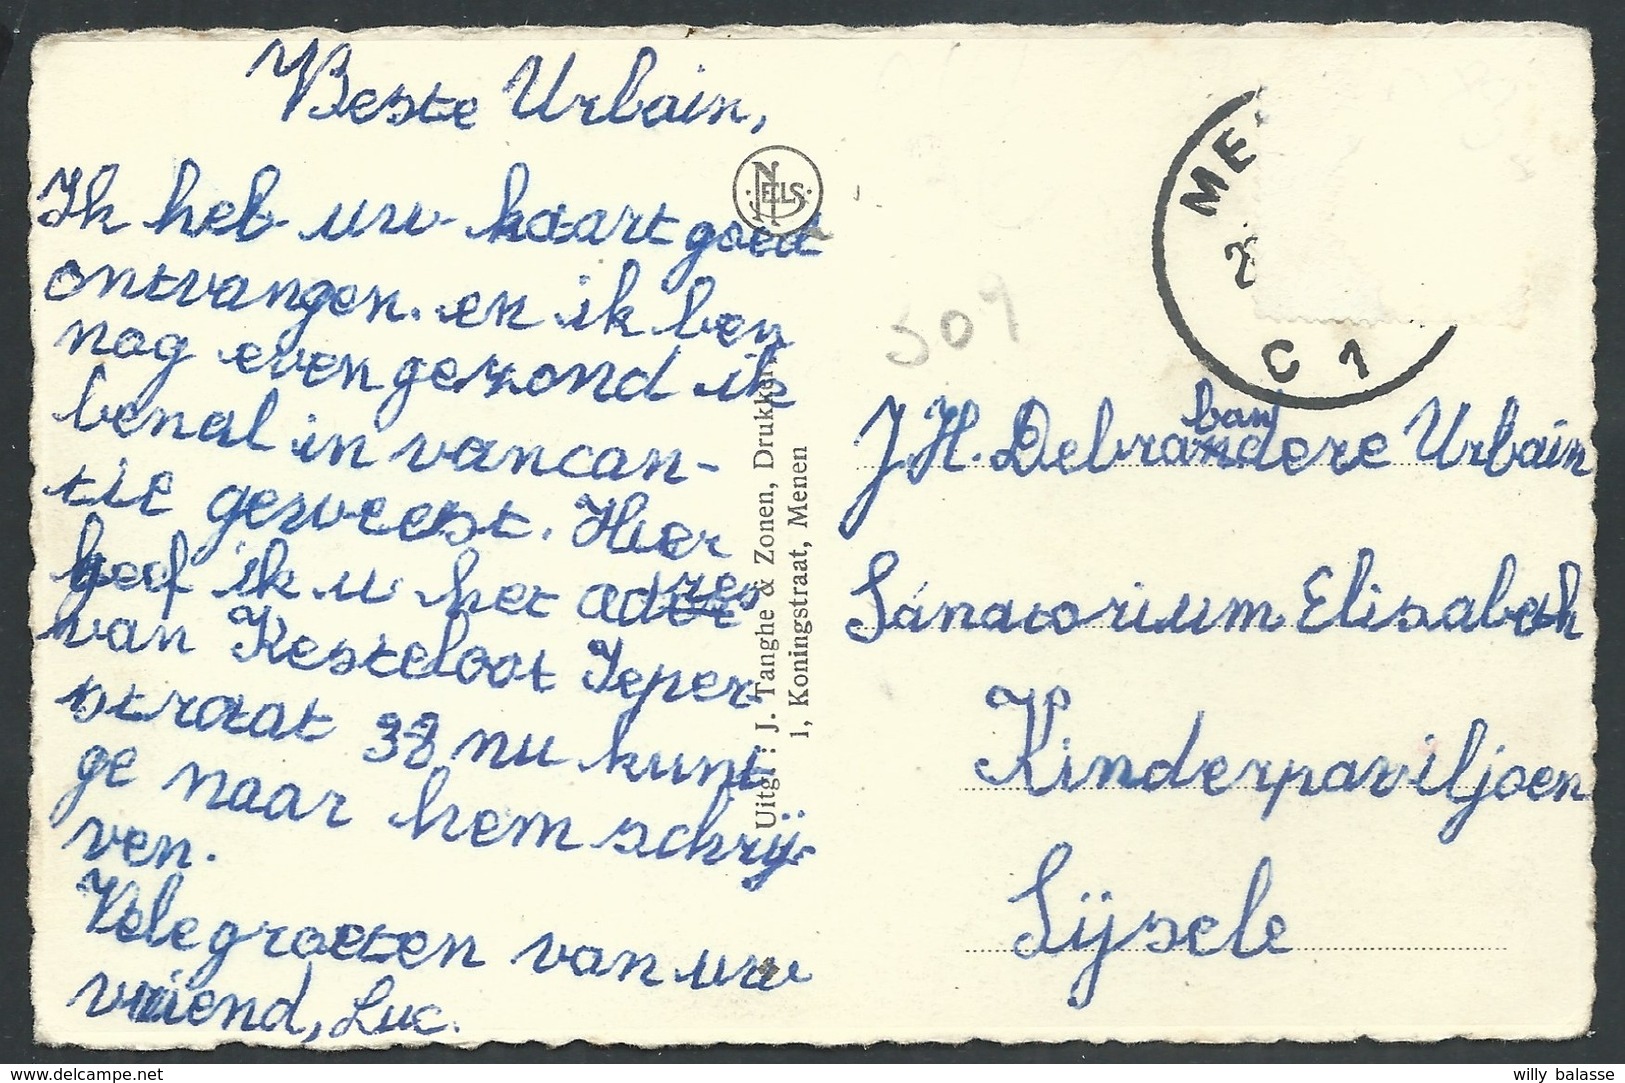 Beste Urbain,
Ik heb uw kaart goed
ontvangen. en ik ben
nog even gezond ik
benal in vancan-
tie geweest. Hier
geef ik u het adres
van Kesteloot Ieper-
straat 38 nu kunt
ge naar hem schrij-
ven.
Vele groeten van uw
vriend, Luc.
NELS
Uitg.: J. Tanghe & Zonen, Drukker,
1, Koningstraat, Menen
ME
C 1
509
J.H. Debrabandere Urbain
Sánatorium Elisabeth
Kinderpaviljoen
Sijsele
willy balasse
www.delcampe.net